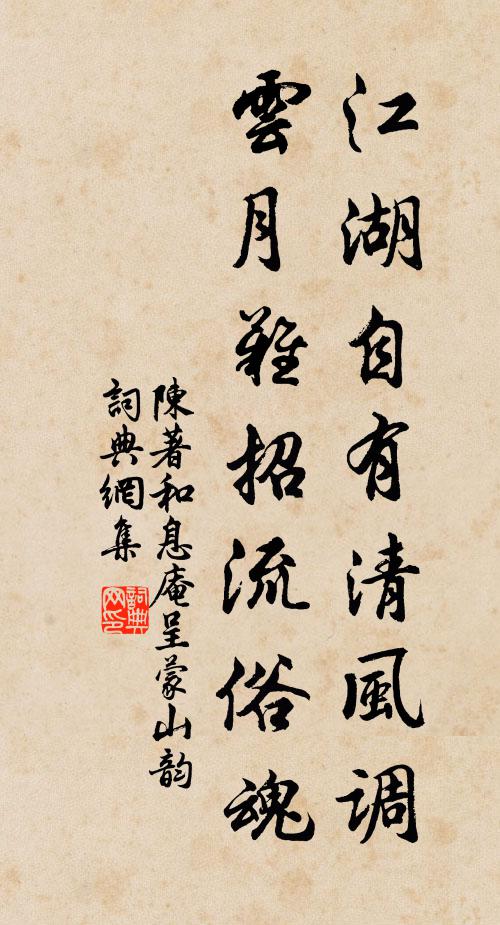 江湖自有清風調
雲月難招流俗魂
陳著和息庵呈蒙山韵
詞典網集
詞典网印